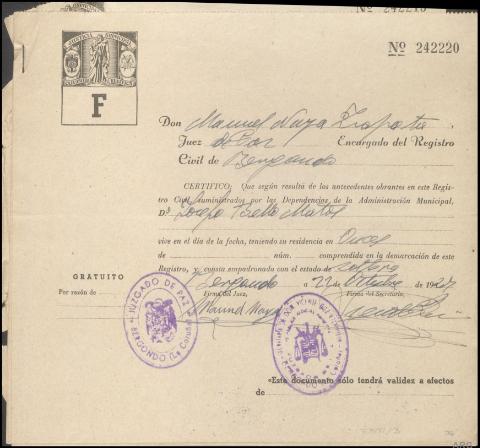 Nº 242220
F
Don Manuel Naya
Juez de Paz Encargado del Registro
Civil de Bergondo
CERTIFICO: Que según resulta de los antecedentes obrantes en este Regis-
tro Civil suministrados por las Dependencias de la Administración Municipal,
D.ª Josefa Bello Matos
vive en el día de la fecha, teniendo su residencia en
de núm. comprendida en la demarcación de este
Registro, y consta empadronada con el estado de soltera
GRATUITO
Bergondo a 22 de Octubre de 19
Por razón de
Firma del Juez,
Firma del Secretario,
Manuel Naya
JUZGADO DE PAZ
BERGONDO (La Coruña)
«Este documento sólo tendrá validez a efectos
de